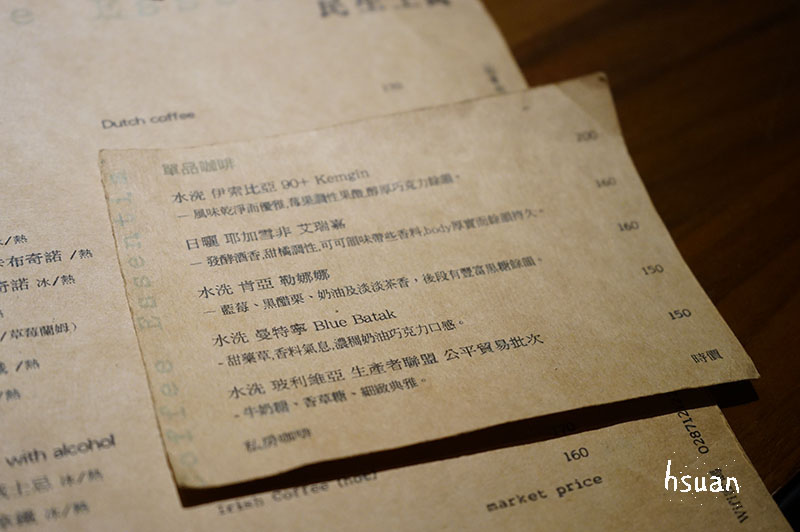 民生工寓
Dutch coffee
單品咖啡
水洗 伊索比亞 90+ Kemgin 200
— 風味乾淨而優雅,莓果調性果酸,醇厚巧克力餘韻。
日曬 耶加雪菲 艾瑞嘉 160
— 發酵酒香,甜橘調性,可可韻味帶些香料,body厚實而餘韻持久。
水洗 肯亞 勒娜娜 160
— 藍莓、黑醋栗、奶油及淡淡茶香,後段有豐富黑糖餘韻。
水洗 曼特寧 Blue Batak 150
- 甜藥草,香料氣息,濃稠奶油巧克力口感。
水洗 玻利維亞 生產者聯盟 公平貿易批次 150
- 牛奶糖、香草糖、細緻典雅。
私房咖啡 時價
冰/熱
卡布奇諾 冰/熱
奇諾 冰/熱
/草莓蘭姆)
/熱
/熱
with alcohol
威士忌 冰/熱
冰/熱
Irish Coffee (hot)
160
market price
hsuan